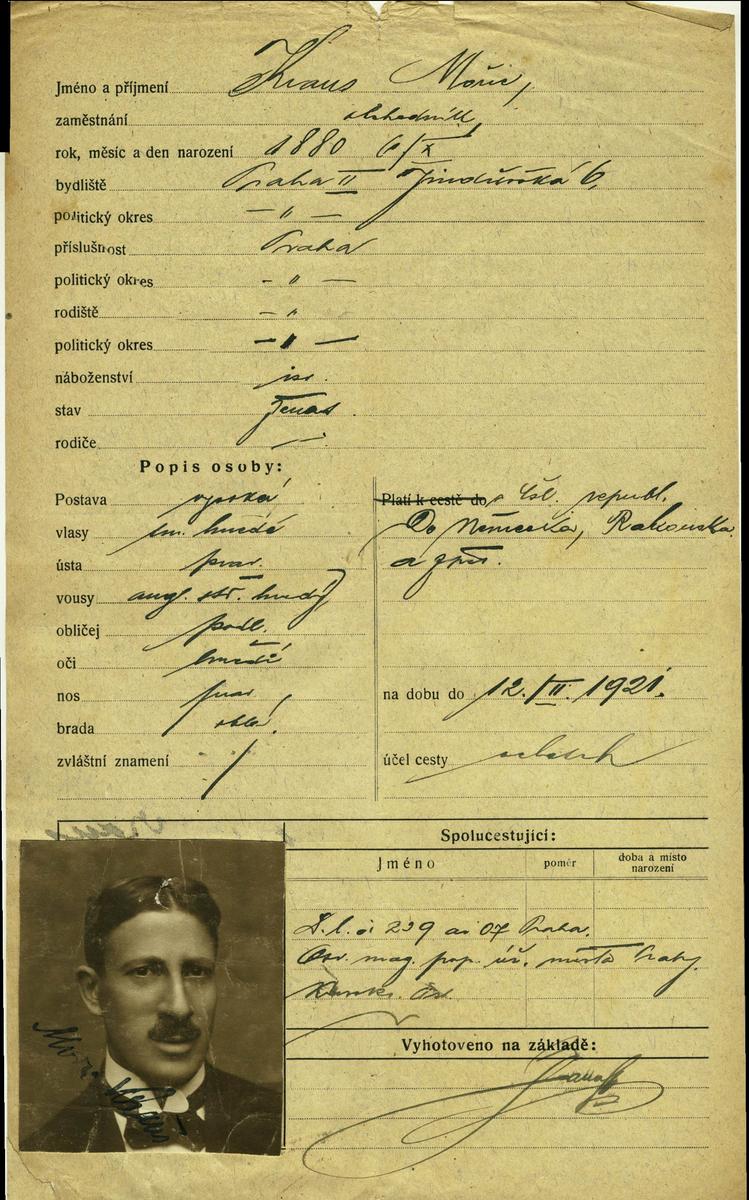 Jméno a příjmení Kraus Mořic,
zaměstnání obchodník
rok, měsíc a den narození 1880 6/X
bydliště Praha II Jindřišská 6,
politický okres — " —
příslušnost Praha
politický okres - " —
rodiště - "
politický okres — " —
náboženství isr.
stav ženat
rodiče —
Popis osoby:
Postava vysoká
vlasy tm. hnědé
ústa prav.
vousy angl. stř. hnědý
obličej podl.
oči hnědé
nos prav.
brada oblá
zvláštní znamení /
Platí k cestě do Čsl. republ.
Do Německa, Rakouska
a zpět.
na dobu do 12./II. 1921.
účel cesty obchod
Spolucestující:
Jméno poměr doba a místo narození
D. l. č 229 ai 07 Praha.
Osv. mag. pop. úř. města Prahy.
Vyhotoveno na základě: